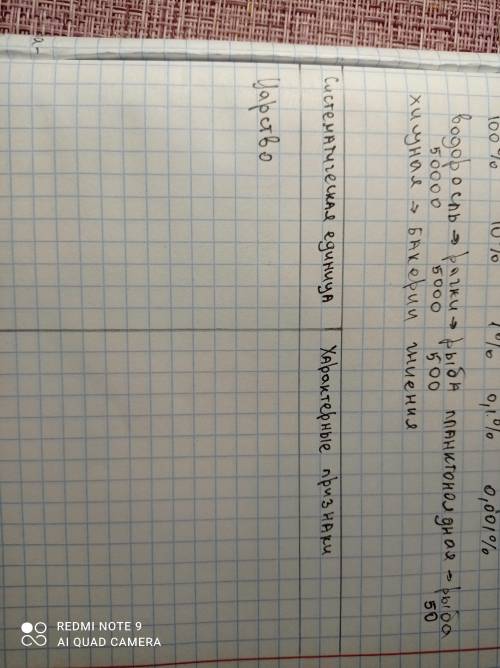 100% 10% 1% 0,1% 0,001%
водоросль → рачки → рыба планктоноядная → рыба
50000 5000 500 50
хищная → бакерии гниения
Систематическая единица Характерные признаки
Царство
а-
REDMI NOTE 9
AI QUAD CAMERA